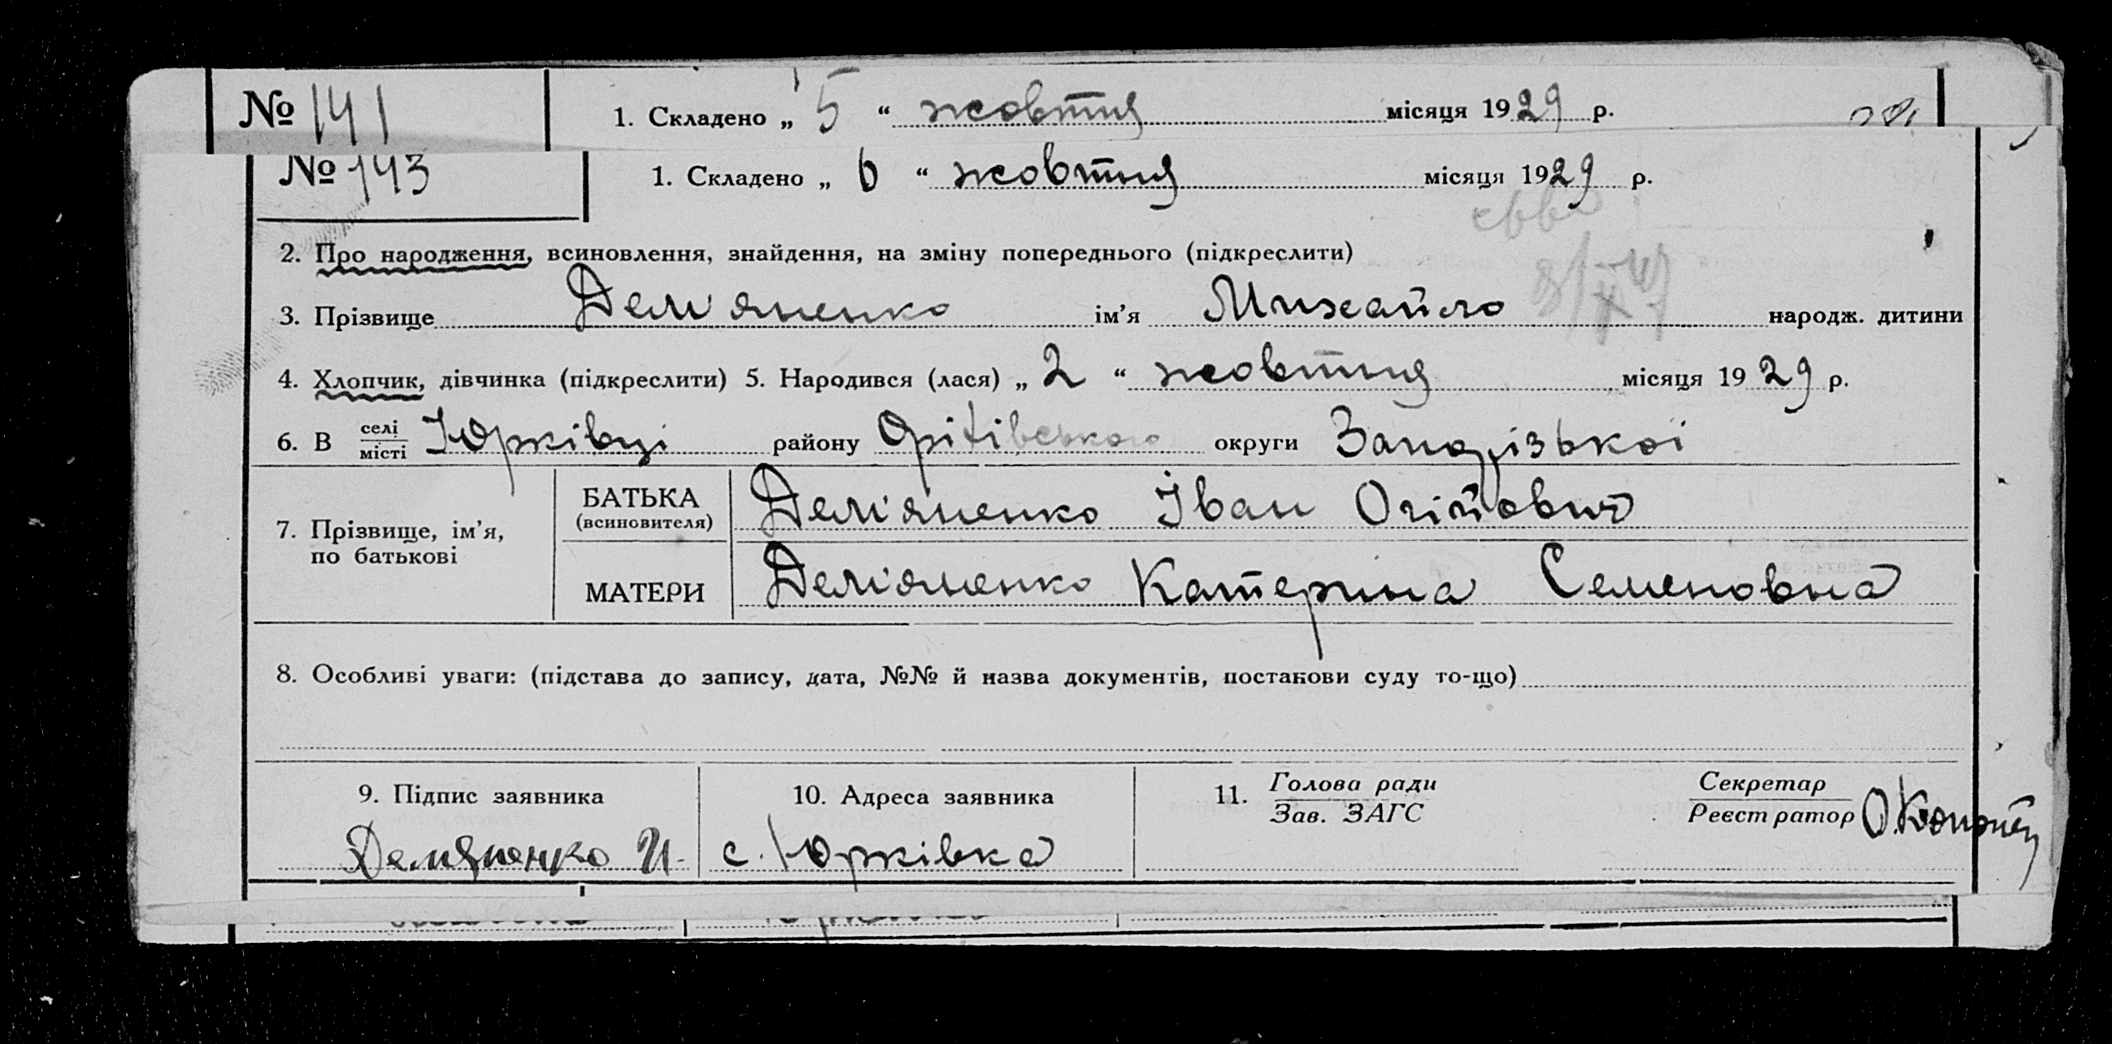 № 141 1. Складено „ 5 “ жовтня місяця 1929 р.
№ 143 1. Складено „ 6 “ жовтня місяця 1929 р.
2. Про народження, всиновлення, знайдення, на зміну попереднього (підкреслити)
3. Прізвище Дем'яненко ім'я Михайло народж. дитини
4. Хлопчик, дівчинка (підкреслити) 5. Народився (лася) „ 2 “ жовтня місяця 1929 р.
6. В селі/місті Юрківці району Оріхівського округи Запорізької
7. Прізвище, ім'я, по батькові
БАТЬКА (всиновителя) Дем'яненко Іван
МАТЕРИ Дем'яненко Катерина Семеновна
8. Особливі уваги: (підстава до запису, дата, №№ й назва документів, постанови суду то-що)
9. Підпис заявника 10. Адреса заявника 11. Голова ради Секретар
Зав. ЗАГС Реєстратор
Демяненко И. с. Юрківка